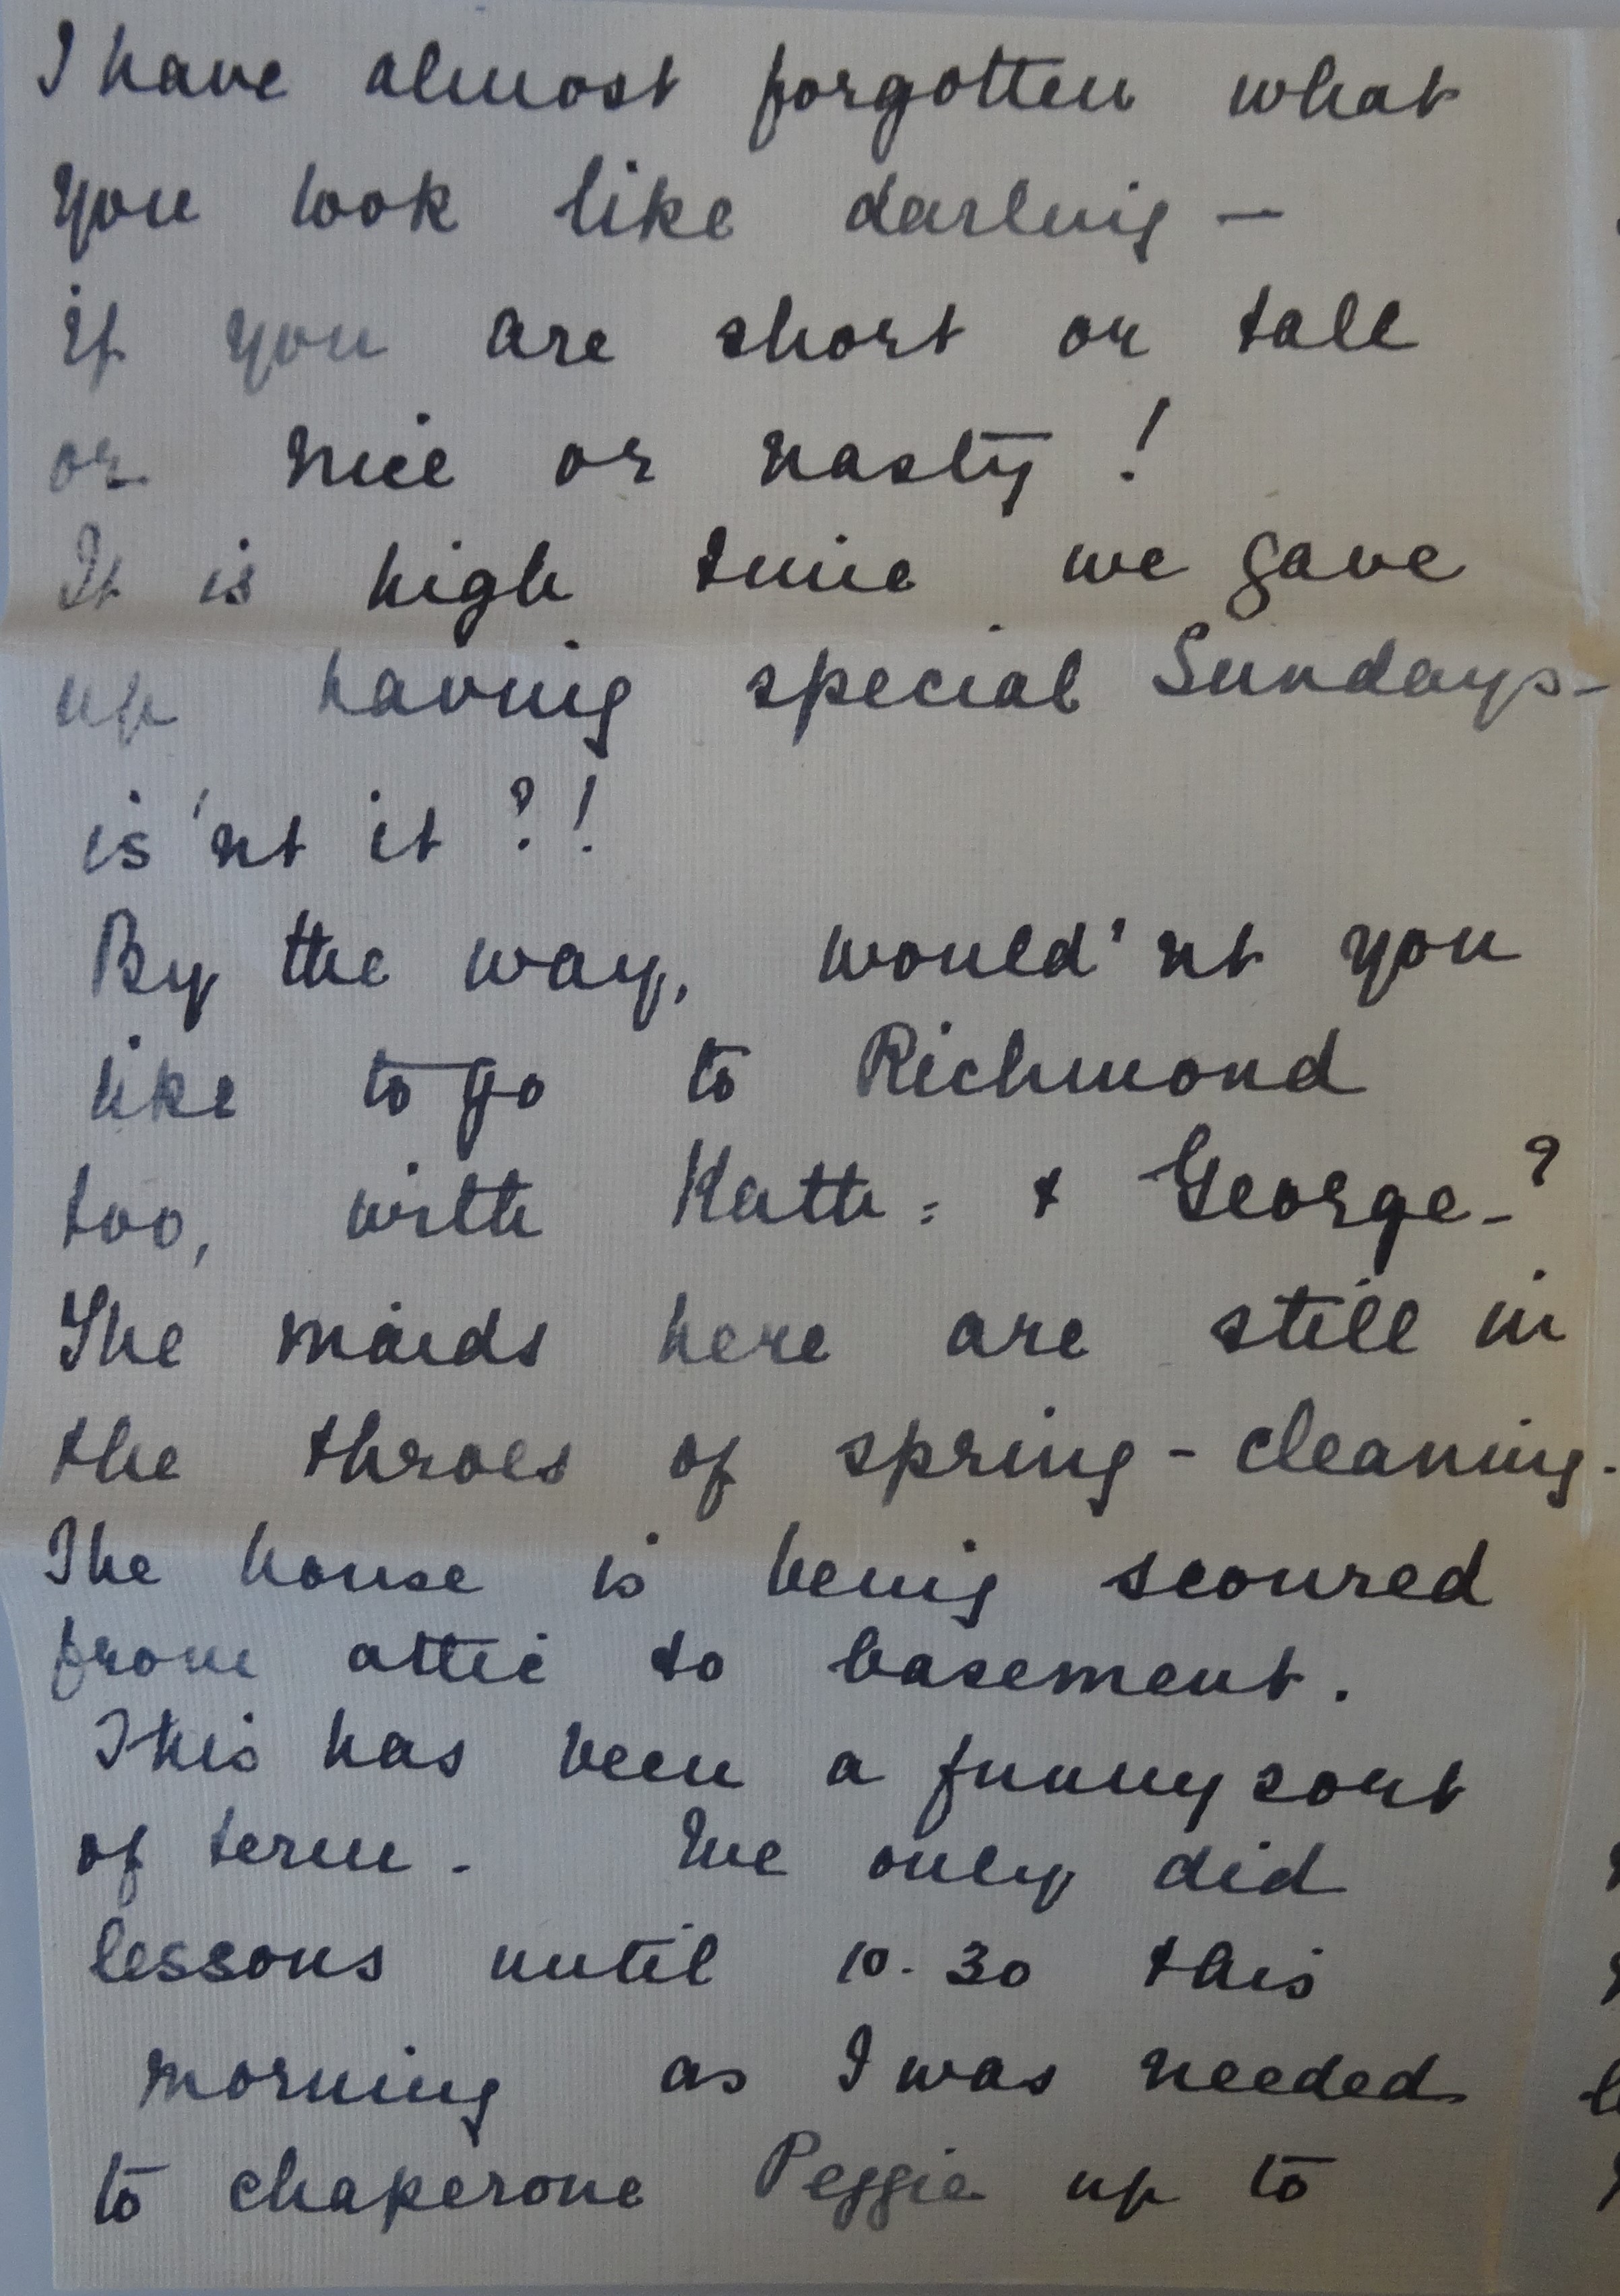 I have almost forgotten what
you look like darling —
if you are short or tall
or nice or nasty !
It is high time we gave
up having special Sundays -
is'nt it ? !
By the way, would'nt you
like to go to Richmond
too, with Kath: & George - ?
The maids here are still in
the throes of spring - cleaning.
The house is being scoured
from attic to basement.
This has been a funny sort
of term. We only did
lessons until 10.30 this
morning as I was needed
to chaperone Peggie up to